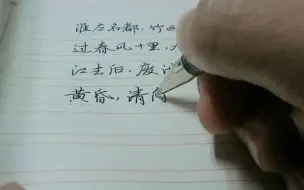 淮左名都，竹西
过春风十里，
江去后，废池
黄昏，清角